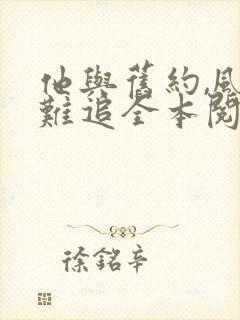 他與舊約,風
難追全本閱
徐銘辛